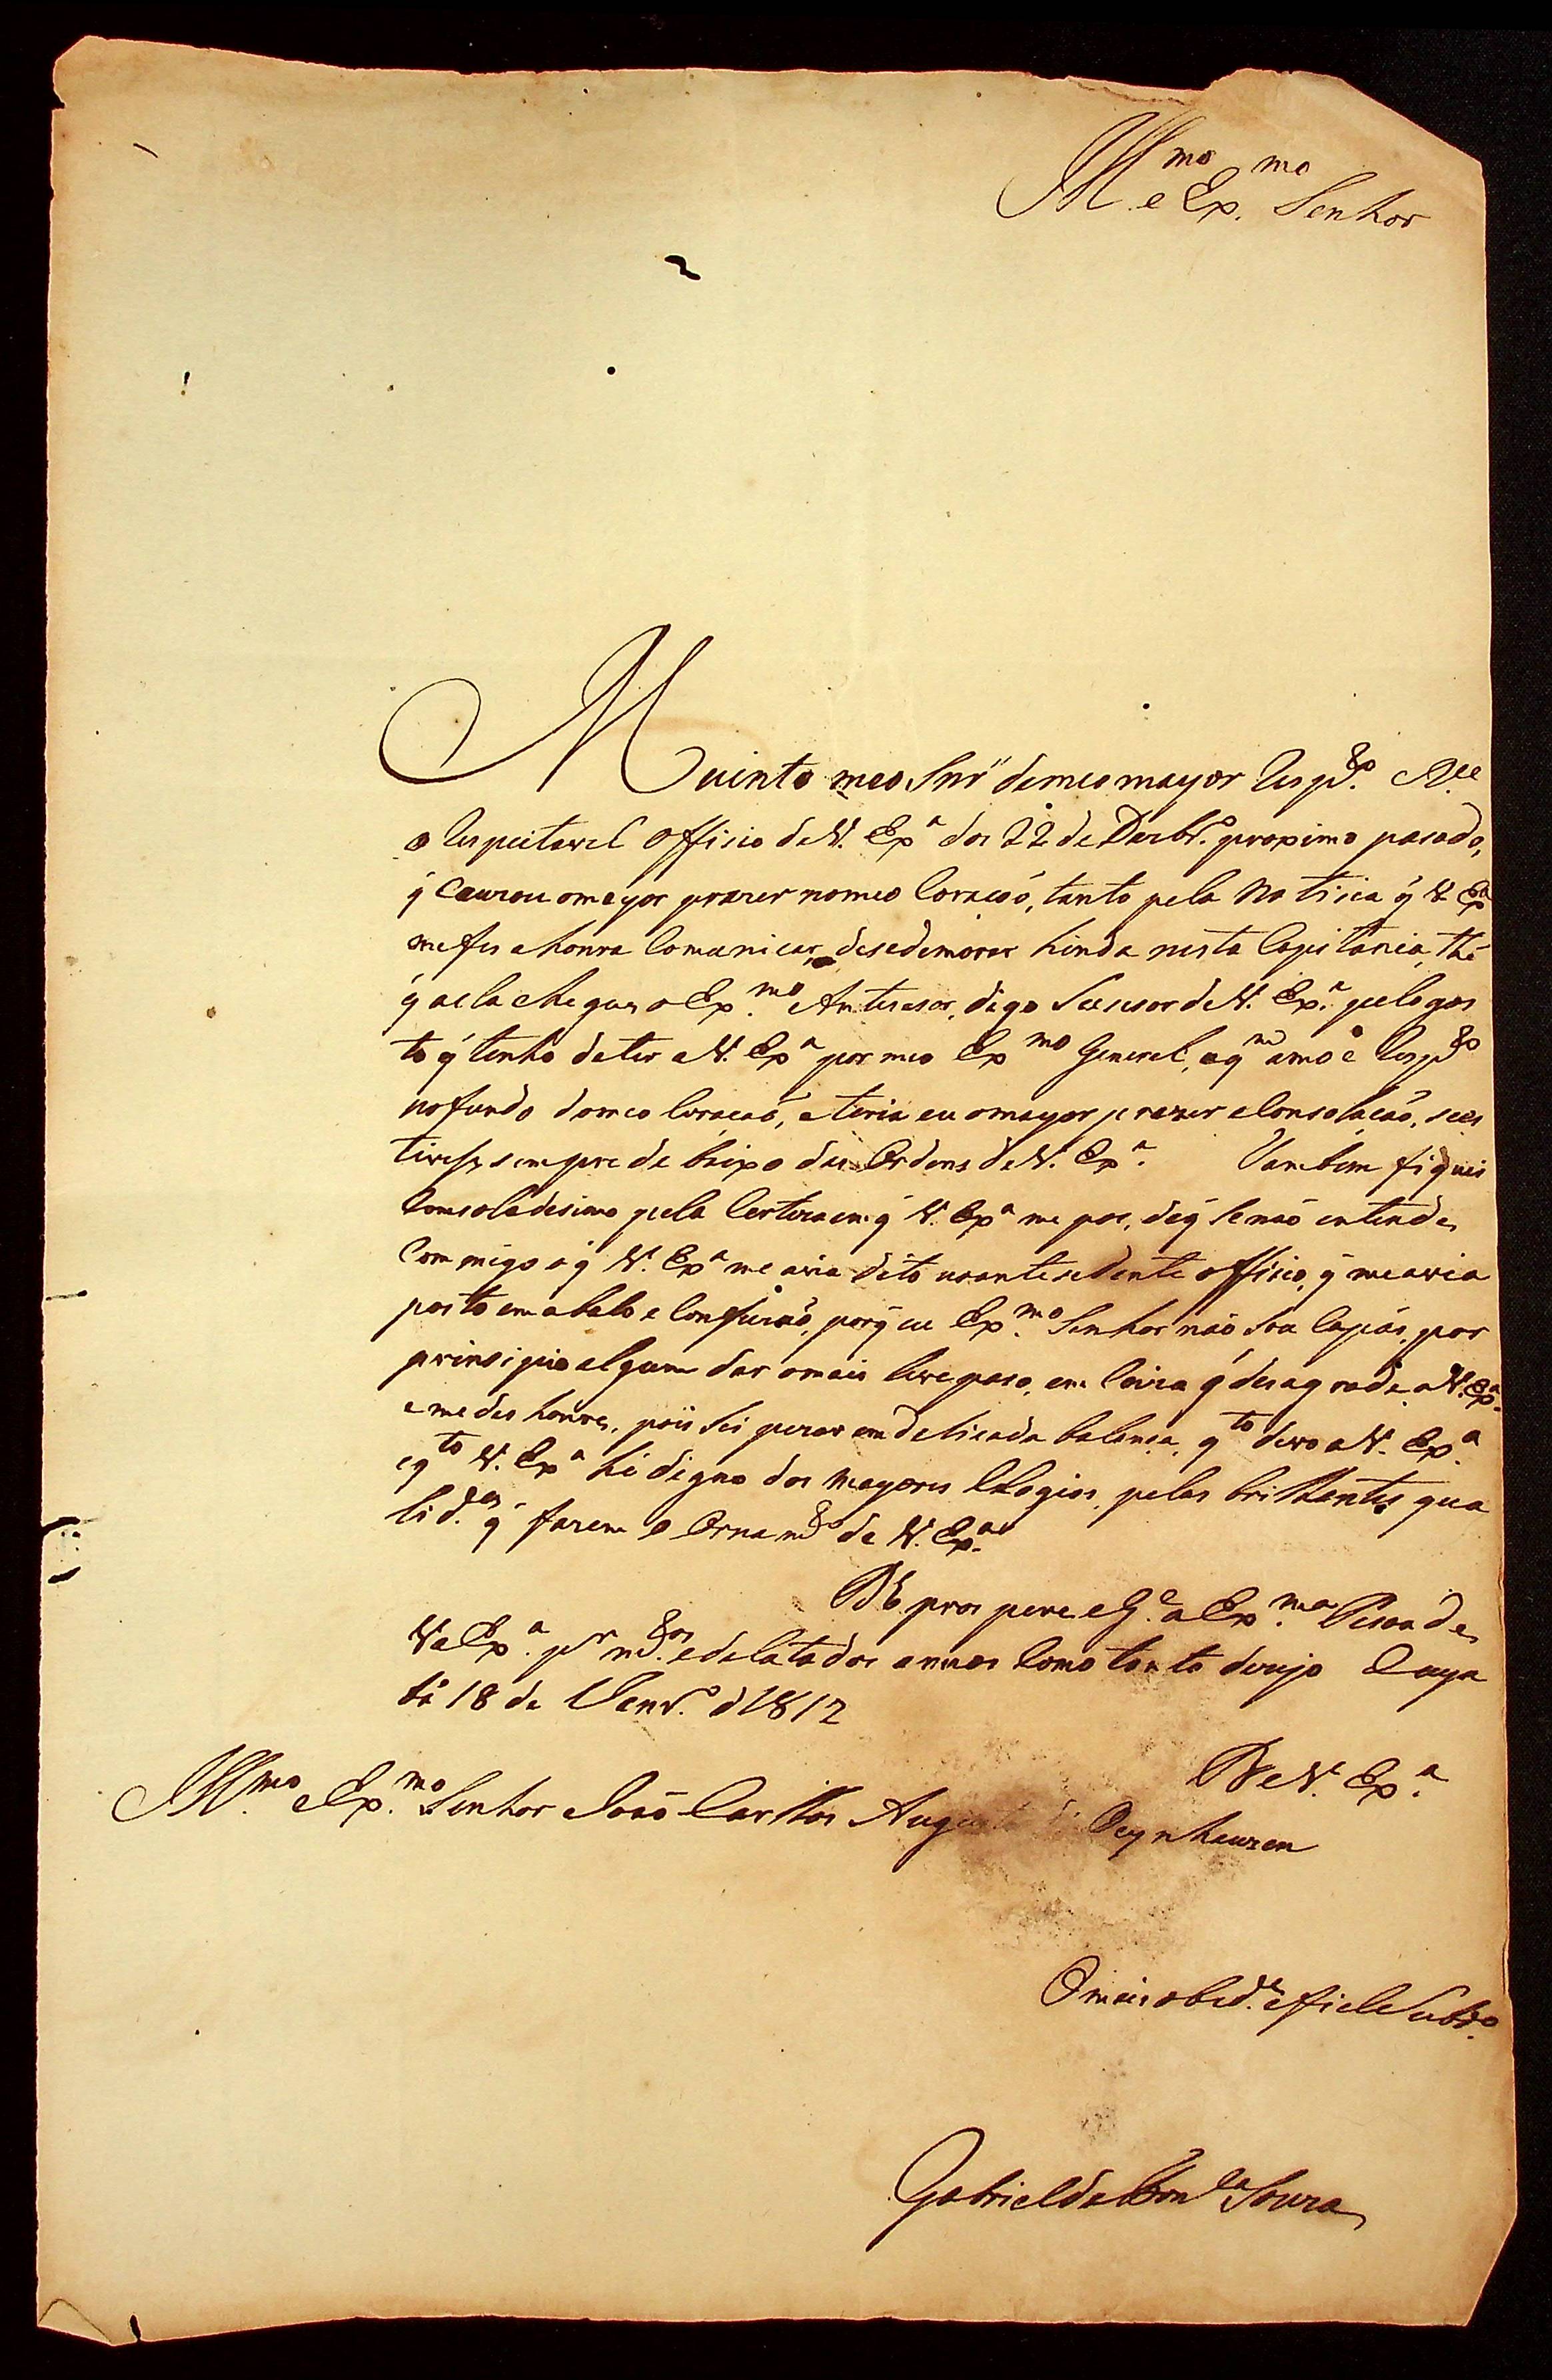 Ill.mo e Ex.mo Senhor
Muinto meo Snr' de meo mayor Resp.to R.ce
o Respeitavel Officio de V. Ex.a dos 22 de Dezbr.o proximo pasado,
q̃ Cauzou o mayor prazer no meo Coracaó, tanto pela Notisia q̃ V. Ex.a
me fes a honra Comunicar, de se demorar hinda nesta Capitania, thé
q̃ a ela chegue o Ex.mo Antesesor, digo Susesor de V. Ex.a pelo gos
to q̃ tenho de ter a V. Ex.a por meo Ex.mo General, a q.m amo e Resp.to
no fundo do meo Coracaó, e teria eu o mayor prazer e Consolacaó, se es
tivese sempre de baixo das Ordens de V. Ex.a. Tambem fiquei
Comsoladisimo pela Certeza em q̃ V. Ex.a me poe, de q̃ se naó entende
Com migo o q̃ V. Ex.a me avia dito no antesedente officio, q̃ me avia
posto em abalo e Confuzaó, porq̃ eu Ex.mo Senhor naó sou Capás, por
prinsipio algum dar o mais leve paso, em Coiza q̃ desagrade a V. Ex.a
e me des honre, pois sei pezar em delicada balanca, q.to devo a V. Ex.a
e q.to V. Ex.a hé digno dos mayores Elogios, pelas brilhantes qua
lid.es q̃ fazem o Ornam.to de V. Ex.a
D.s prospere e G.e a Ex.ma Pesoa de
V. Ex.a p.r m.tos e delatados annos Como tanto dezejo Cuya
bá 18 de Janr.o d 1812
De V. Ex.a
Ill.mo e Ex.mo Senhor Joaó Carllos Augusto d' Oeynhauzen
O mais obed.te e fiel Subd.o
Gabriel da Fon.ca Souza